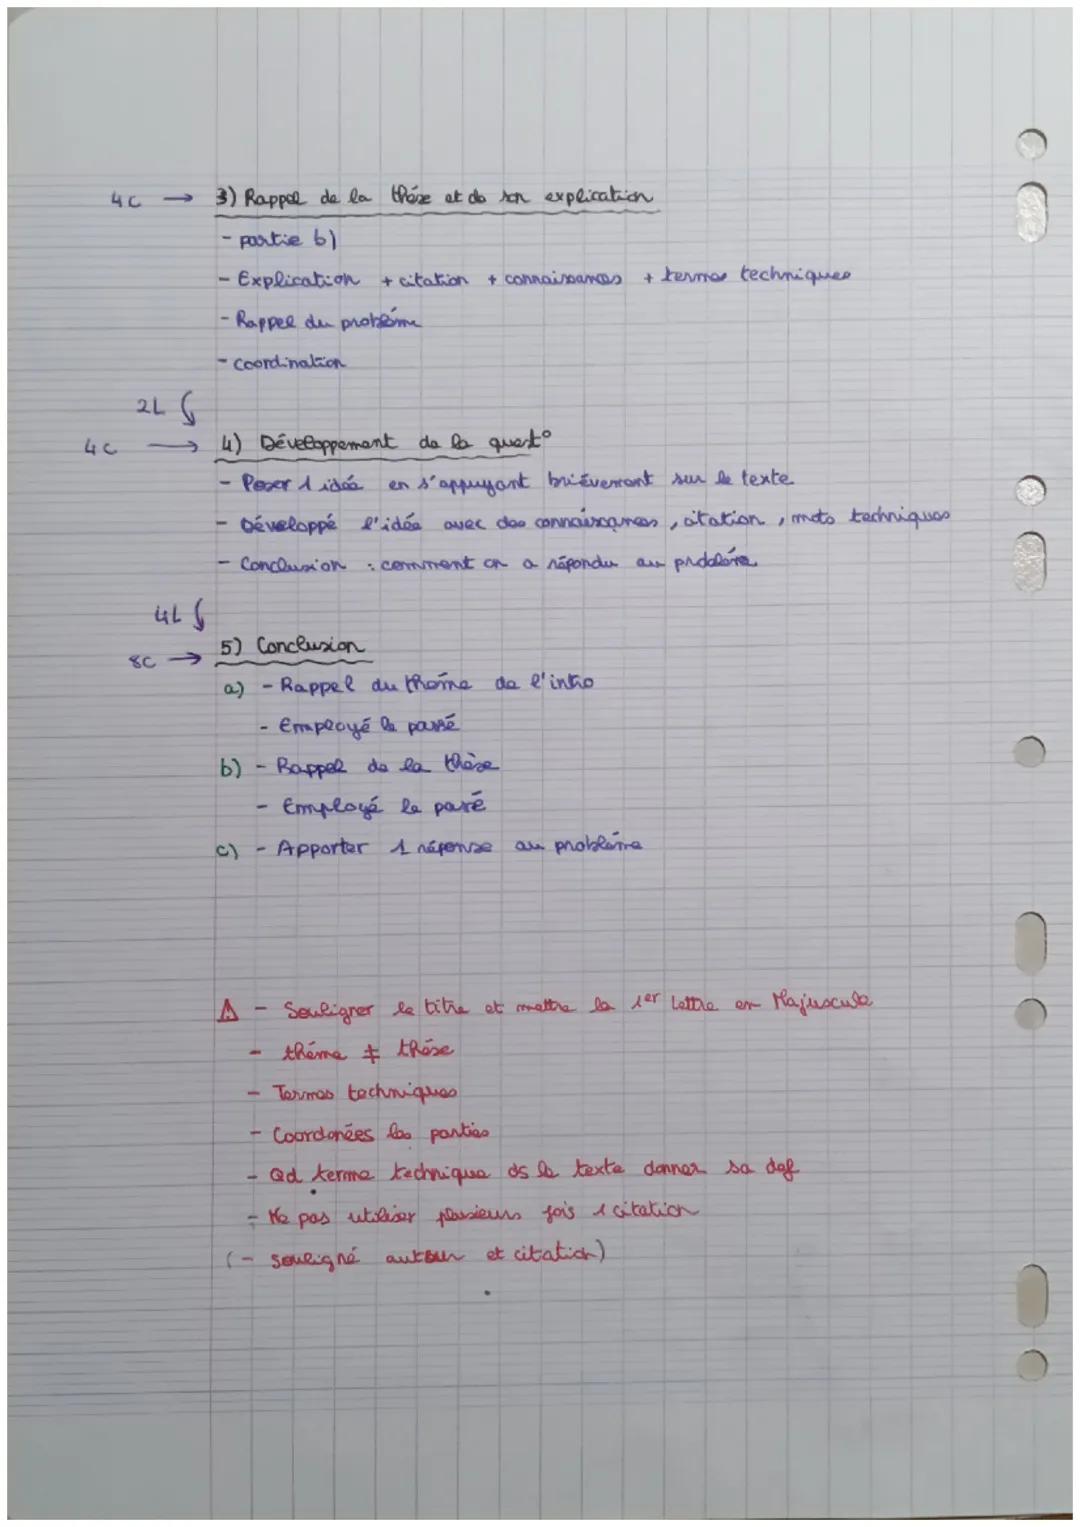 4C → 3) Rappel de la thèse et de son explication
- partie b)
- Explication + citation + connaissances + termes techniques
- Rappel du problème
- coordination
2L
4C → 4) Développement de la quest°
- Poser 1 idée en s'appuyant brièvement sur le texte
- Développé l'idée avec des connaissances, citation, mots techniques
- Conclusion : comment on a répondu au problème
4L
8C → 5) Conclusion
a) - Rappel du thème de l'intro
- Employé le passé
b) - Rappel de la thèse
- Employé le passé
c) - Apporter 1 réponse au problème
⚠ - Souligner le titre et mettre la 1er lettre en Majuscule
- thème ≠ thèse
- Termes techniques
- Coordonées les parties
- Qd terme technique ds le texte donner sa def
- Ne pas utiliser plusieurs fois 1 citation
(- souligné auteur et citation)